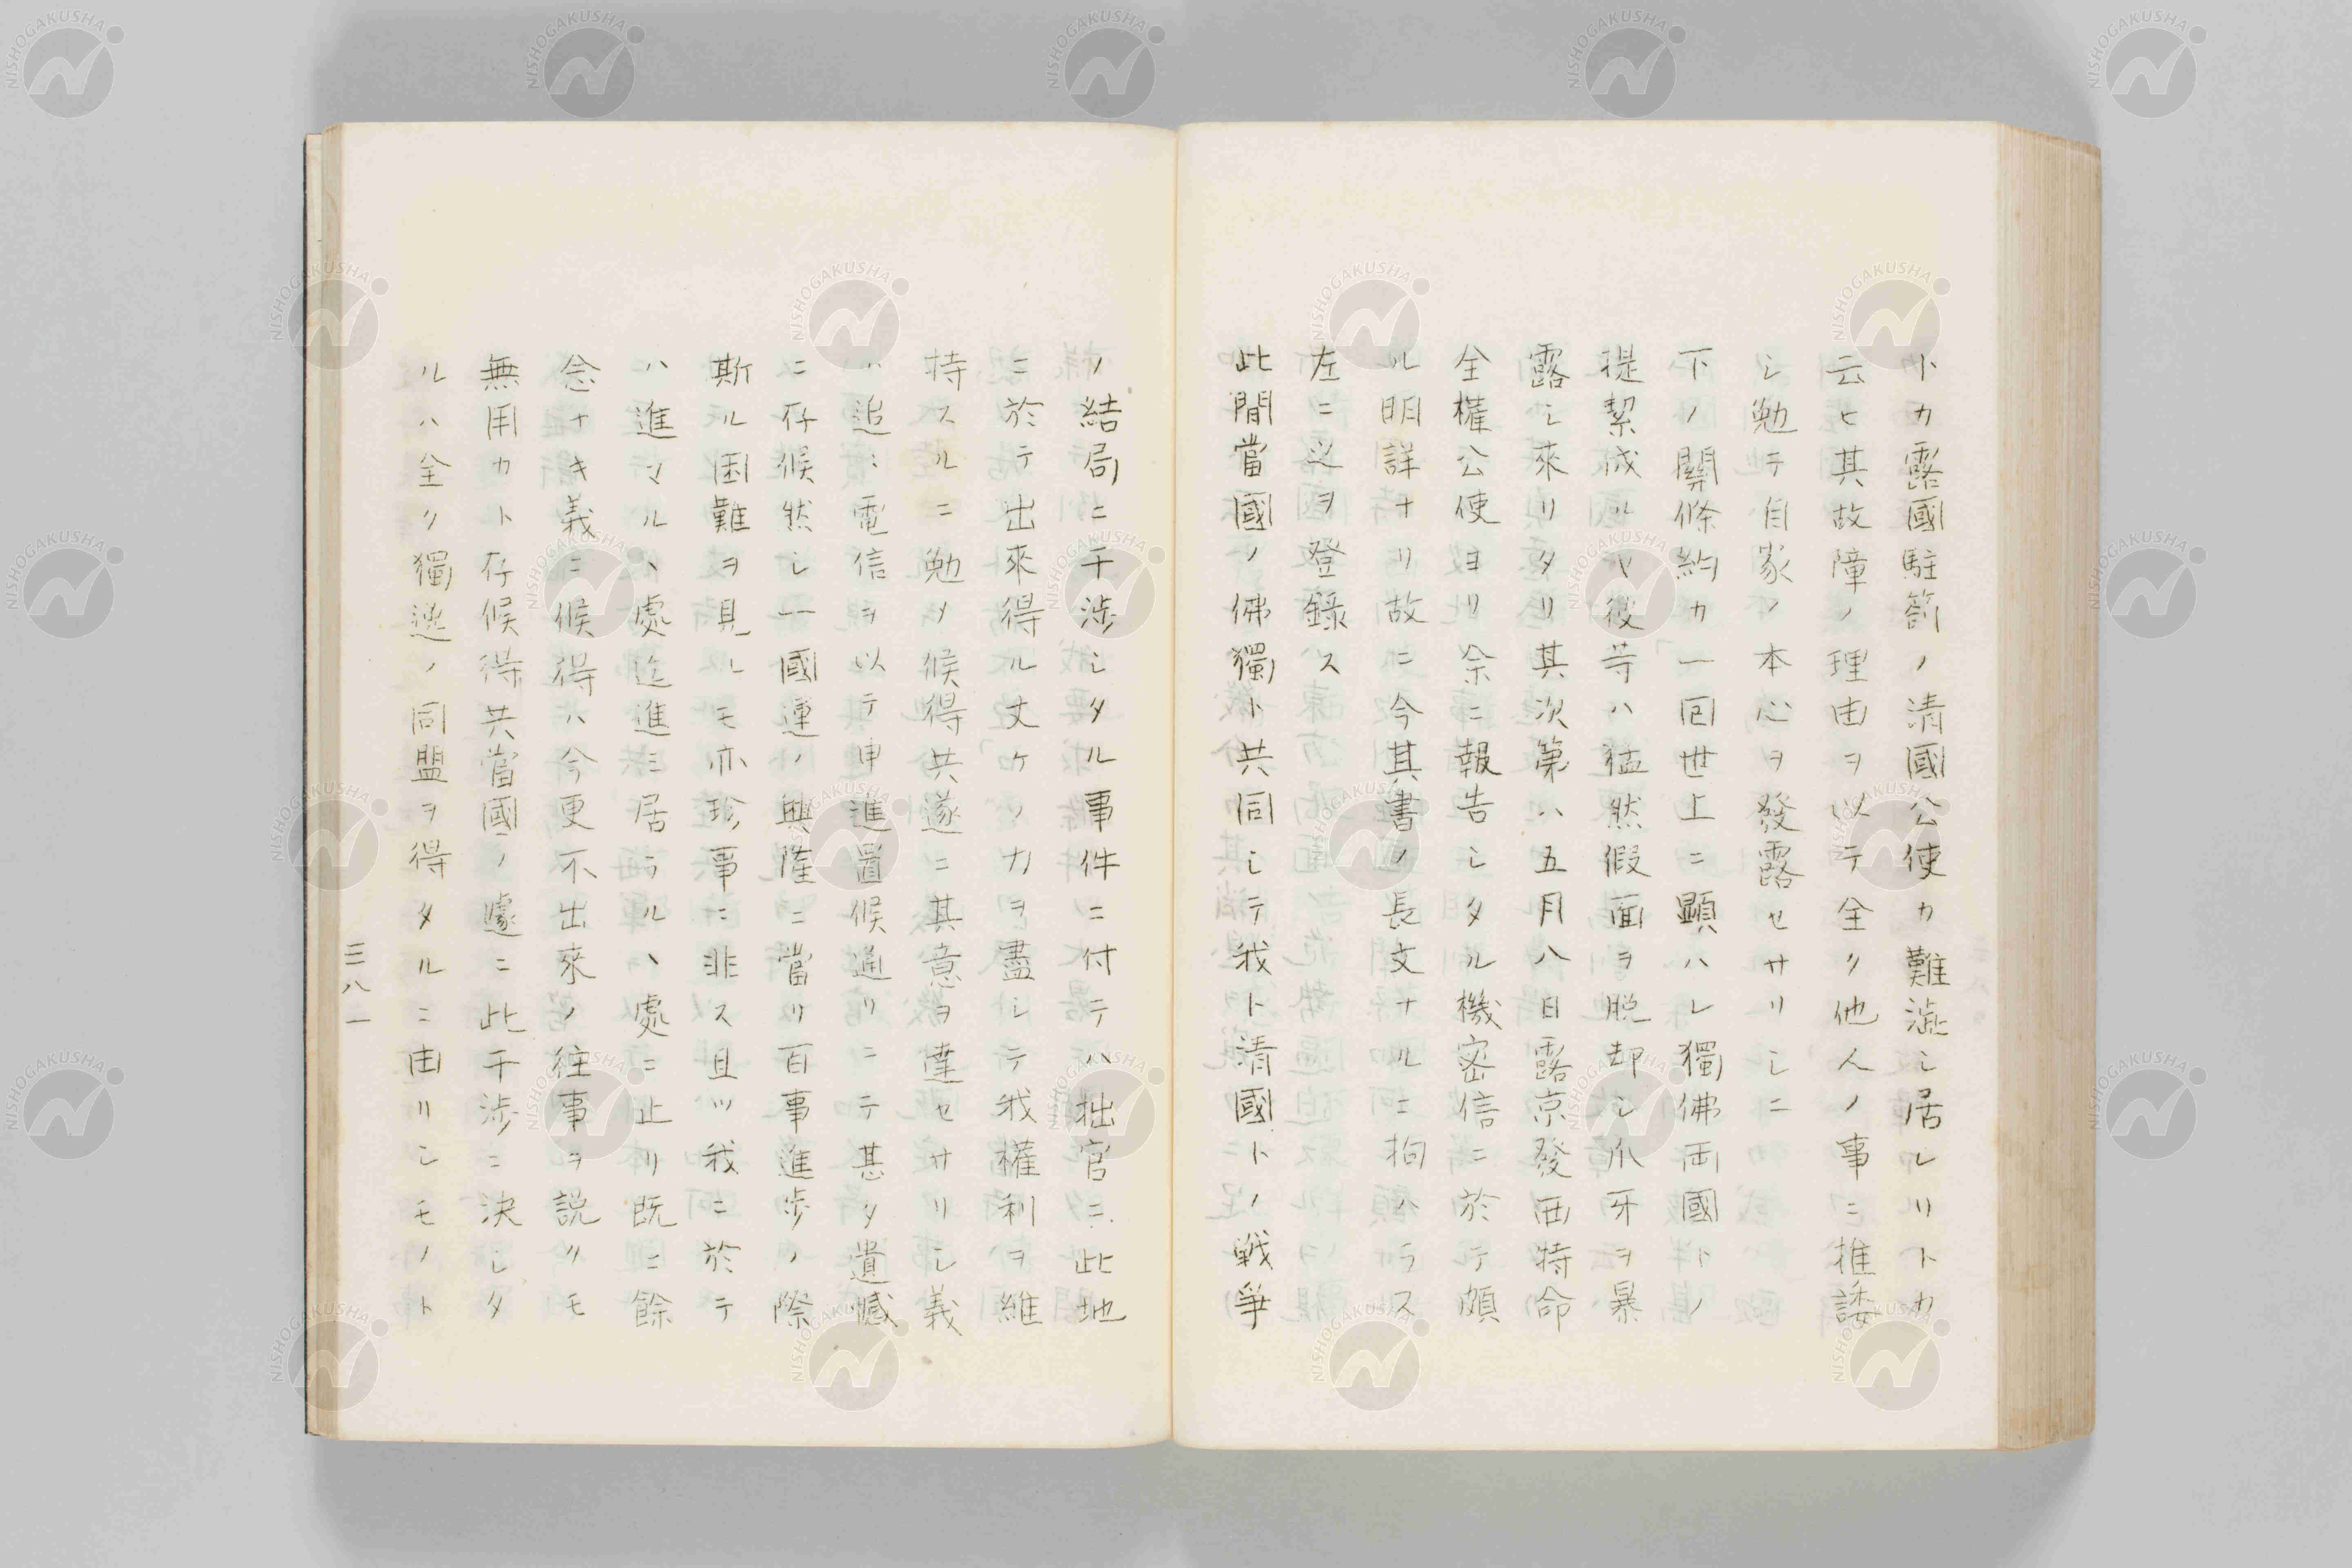 トカ露國駐箚ノ清國公使カ難澁シ居レリトカ
云ヒ其故障ノ理由ヲ以テ全ク他人ノ事ニ推諉
シ勉テ自家ノ本心ヲ發露セサリシニ
下ノ關條約カ一回世上ニ顯ハレ獨佛両國トノ
提挈成ルヤ彼等ハ猛然假面ヲ脱却シ爪牙ヲ暴
露シ來リタリ其次第ハ五月八日露京發西特命
全權公使ヨリ余ニ報告シタル機密信ニ於テ頗
ル明詳ナリ故ニ今其書ノ長文ナルニ拘ハラス
左ニ之ヲ登錄ス
此間當國ノ佛獨ト共同シテ我ト清國トノ戦爭
ノ結局ニ干渉シタル事件ニ付テハ拙官ニ此地
ニ於テ出來得ル丈ケノ力ヲ盡シテ我權利ヲ維
持スルニ勉メ候得共遂ニ其意ヲ達セサリシ義
ハ追々電信ヲ以テ申進置候通リニテ甚タ遺憾
ニ存候然シ一國運ノ興隆ニ當リ百事進歩ノ際
斯ル困難ヲ見ルモ亦珍事ニ非ス且ツ我ニ於テ
ハ進マルヽ處迄進ミ居ラルヽ處ニ止リ既ニ餘
念ナキ義ニ候得ハ今更不出來ノ往事ヲ説クモ
無用カト存候得共當國ノ遽ニ此干渉ニ決シタ
ルハ全ク獨逸ノ同盟ヲ得タルニ由リシモノト
三八一
NISHOGAKUSHA